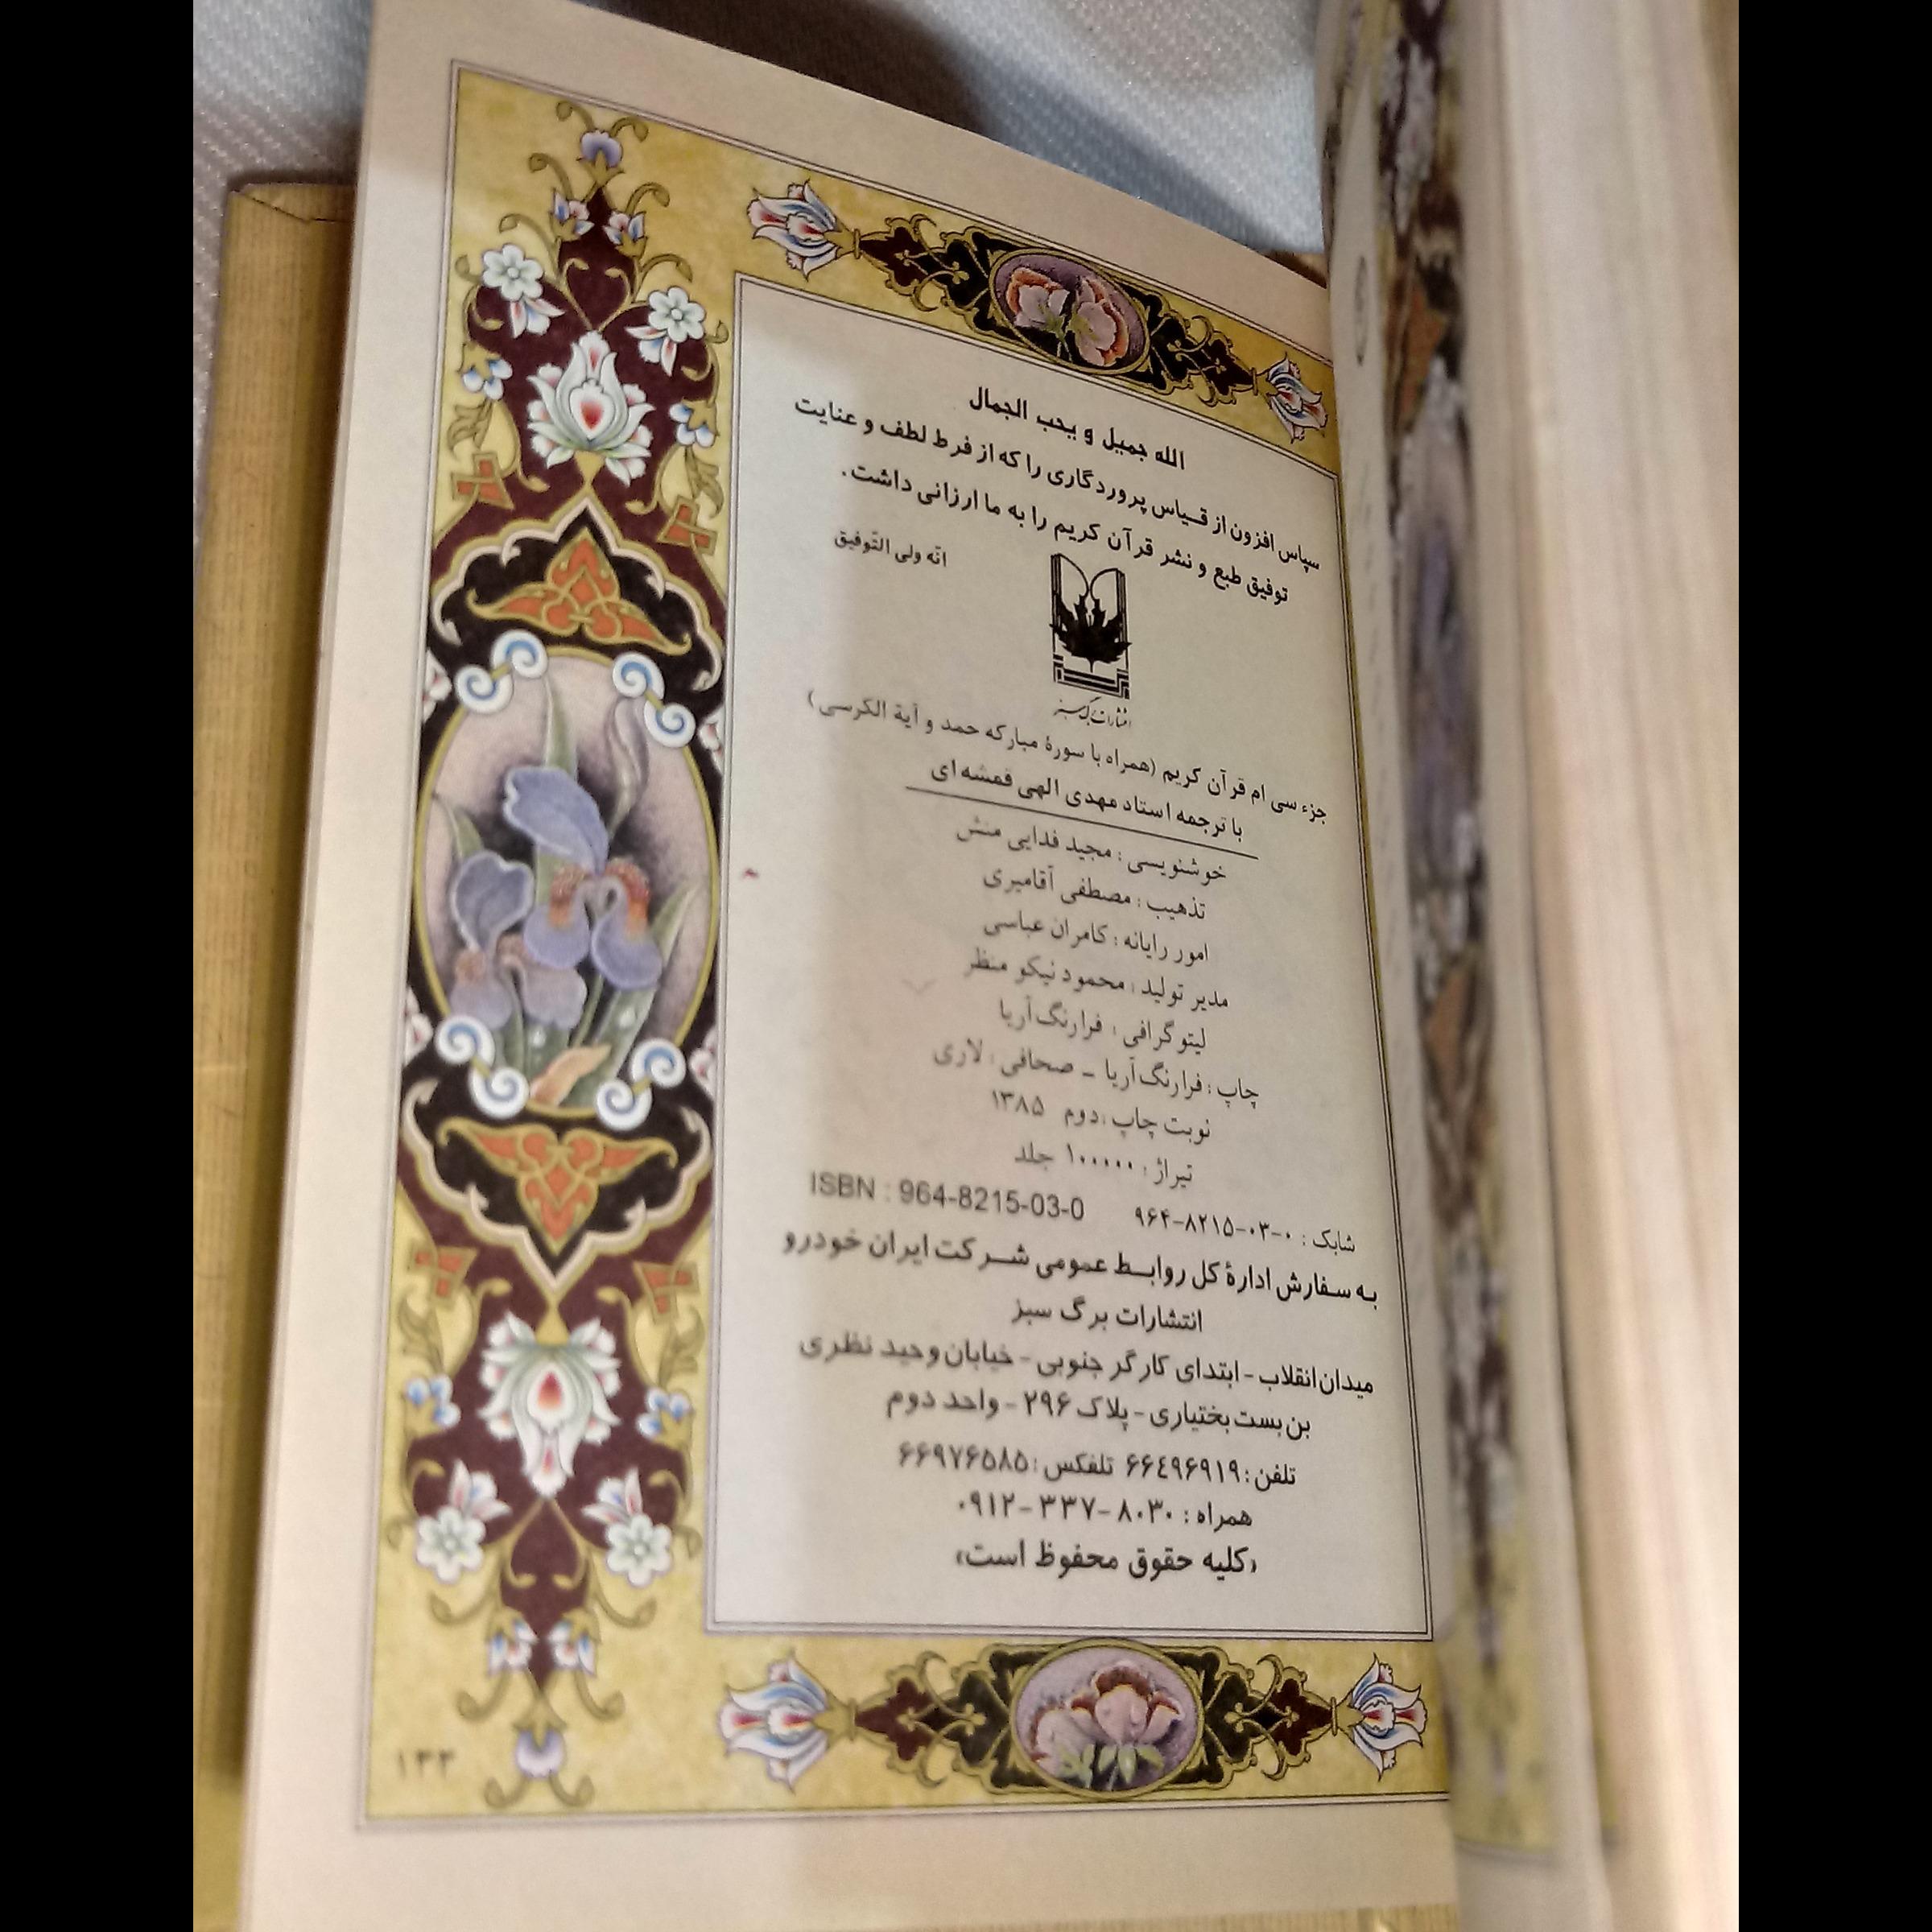 الله جمیل و یحب الجمال
سپاس افزون از قیاس پروردگاری را که از فرط لطف و عنایت
توفیق طبع و نشر قرآن کریم را به ما ارزانی داشت.
انّه ولی التّوفیق
انتشارات برگ سبز
جزء سی ام قرآن کریم (همراه با سورهٔ مبارکه حمد و آیة الکرسی)
با ترجمه استاد مهدی الهی قمشه ای
خوشنویسی : مجید فدایی منش
تذهیب : مصطفی آقامیری
امور رایانه : کامران عباسی
مدیر تولید : محمود نیکو منظر
لیتوگرافی : فرارنگ آریا
چاپ : فرارنگ آریا - صحافی : لاری
نوبت چاپ : دوم ۱۳۸۵
تیراژ : ۱۰۰۰۰۰ جلد
شابک : ۰-۰۳-۸۲۱۵-۹۶۴ ISBN : 964-8215-03-0
به سفارش ادارهٔ کل روابط عمومی شرکت ایران خودرو
انتشارات برگ سبز
میدان انقلاب - ابتدای کارگر جنوبی - خیابان وحید نظری
بن بست بختیاری - پلاک ۲۹۶ - واحد دوم
تلفن : ۶۶٤۹۶۹۱۹ تلفکس : ۶۶۹۷۶۵۸۵
همراه : ۸۰۳۰-۳۳۷-۰۹۱۲
«کلیه حقوق محفوظ است»